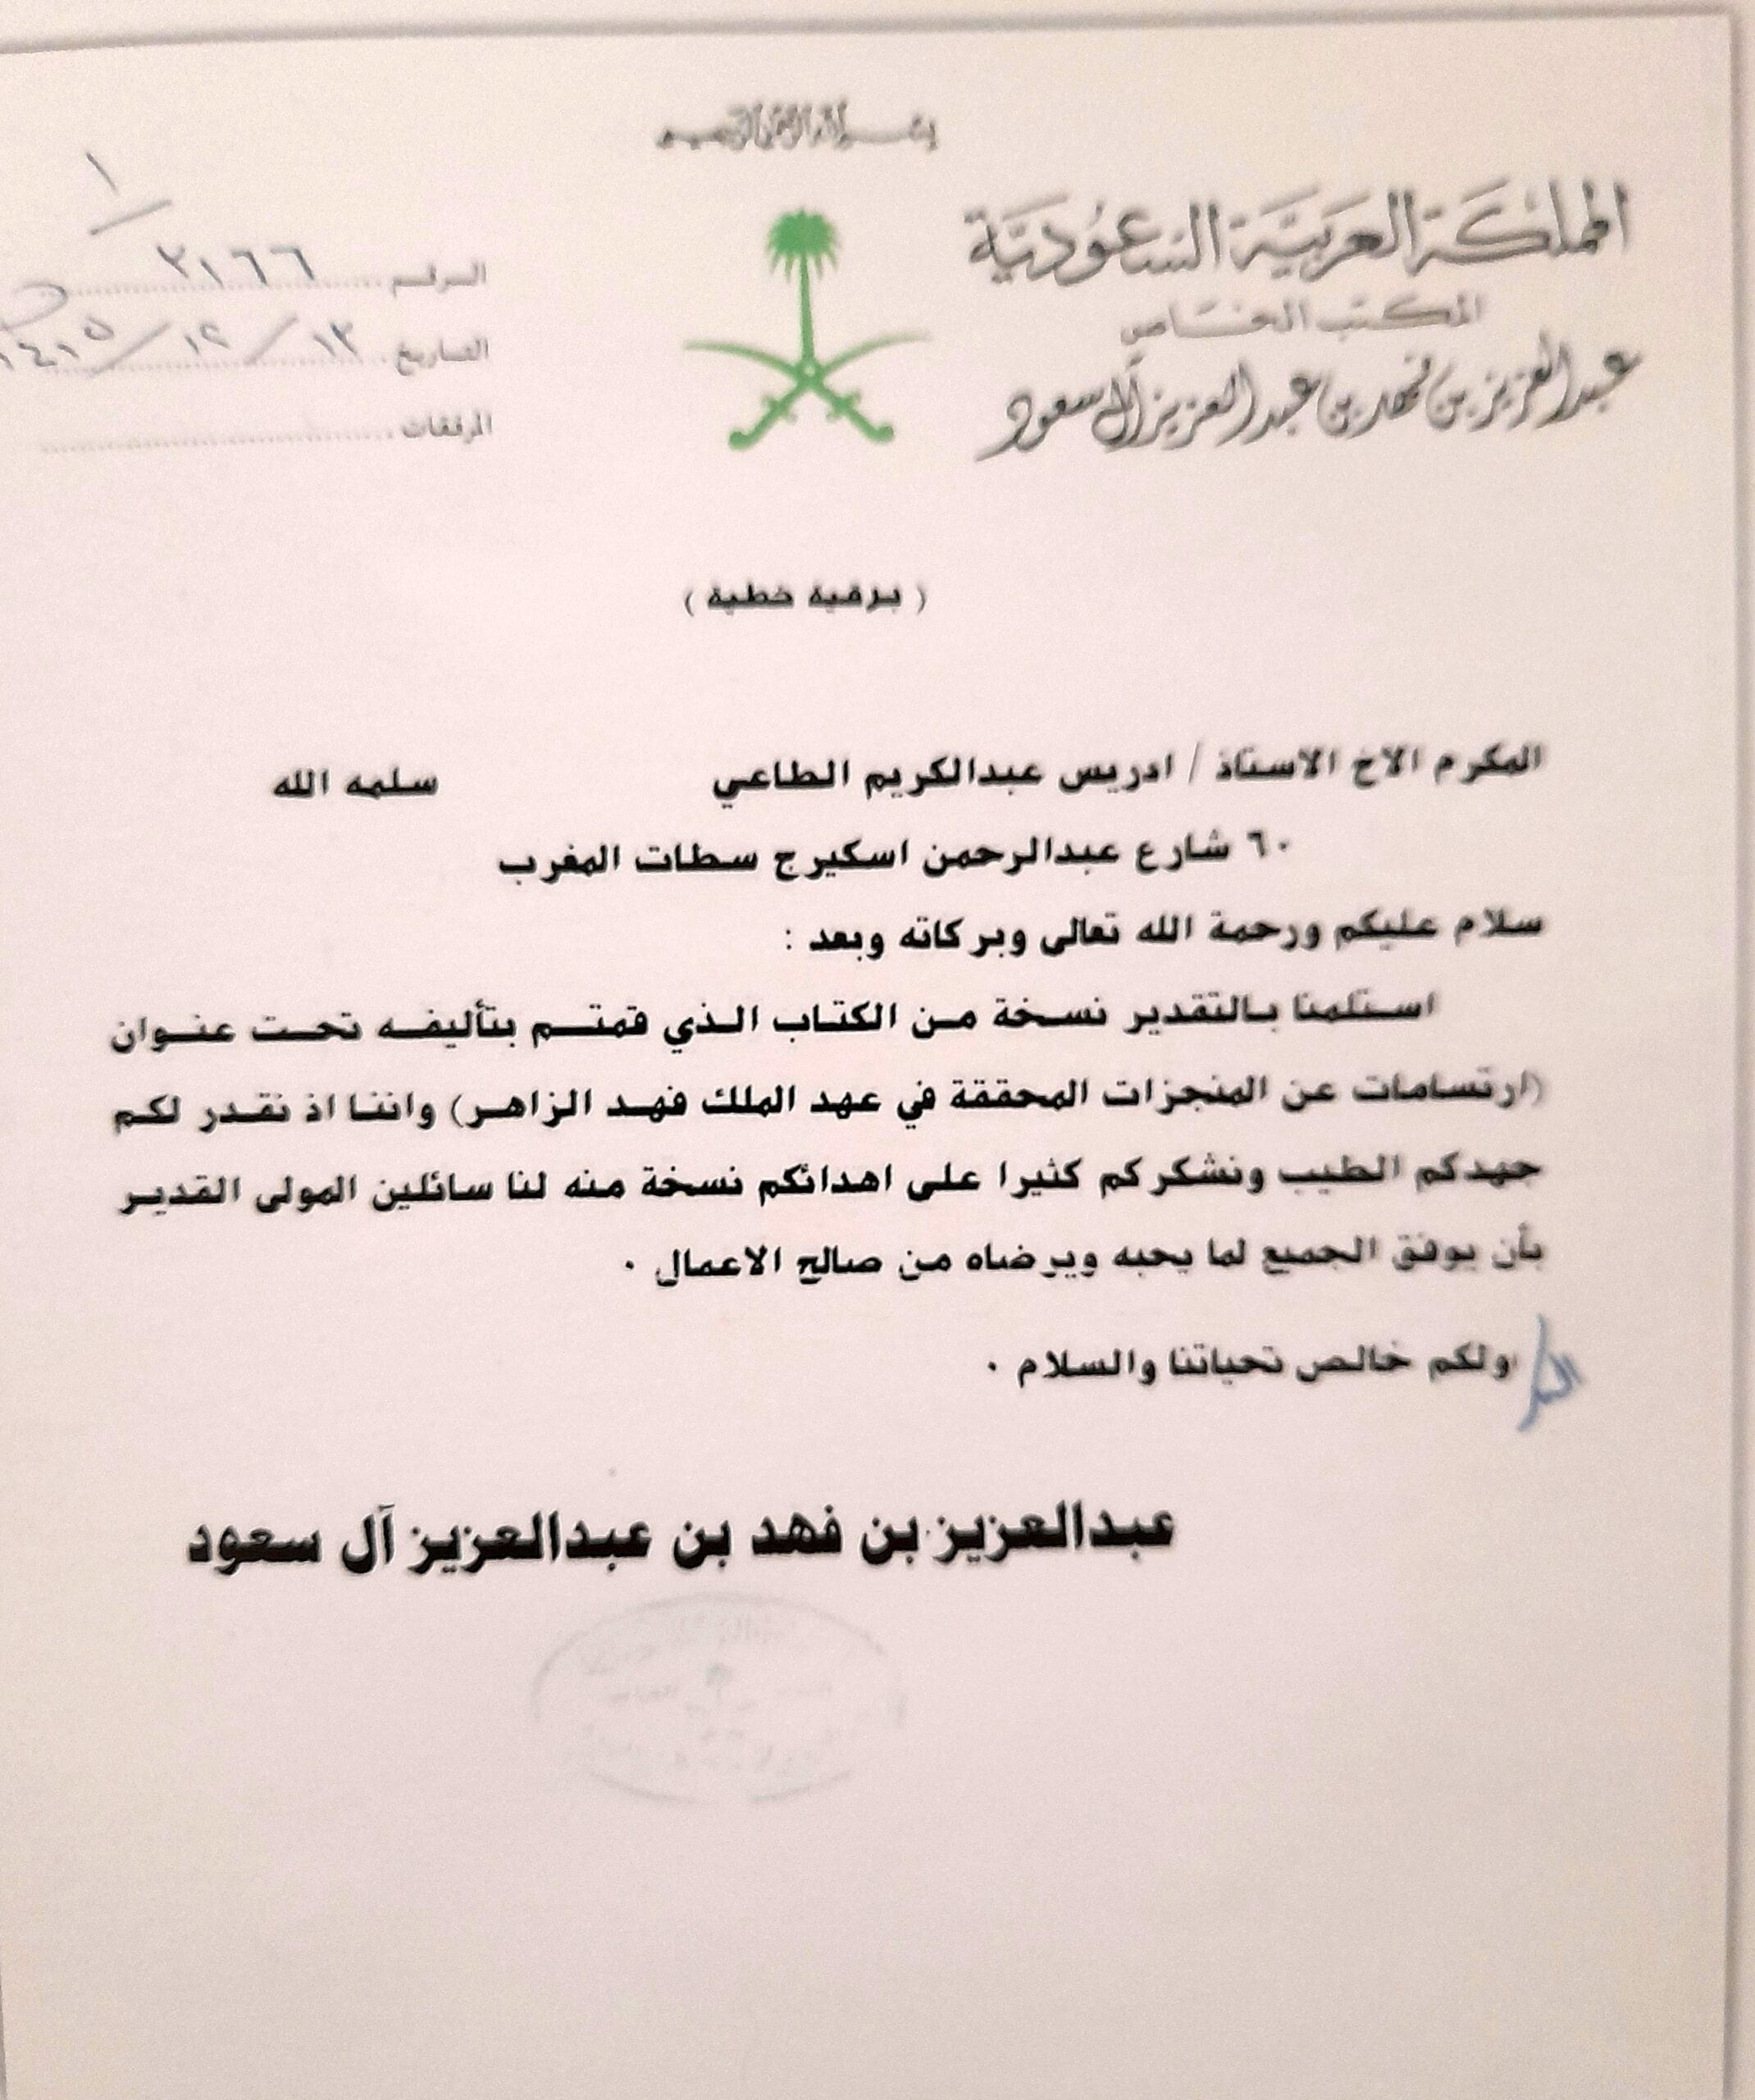 بسم الله الرحمن الرحيم
المملكة العربية السعودية
المكتب الخاص
عبدالعزيز بن فهد بن عبدالعزيز آل سعود
١
الرقم ٢١٦٦
التاريخ ١٣ / ١٢ / ١٤١٥
المرفقات
( برقية خطية )
المكرم الاخ الاستاذ / ادريس عبدالكريم الطاعي سلمه الله
٦٠ شارع عبدالرحمن اسكيرج سطات المغرب
سلام عليكم ورحمة الله تعالى وبركاته وبعد :
استلمنا بالتقدير نسخة من الكتاب الذي قمتم بتأليفه تحت عنوان
(ارتسامات عن المنجزات المحققة في عهد الملك فهد الزاهر) واننا اذ نقدر لكم
جهدكم الطيب ونشكركم كثيرا على اهدائكم نسخة منه لنا سائلين المولى القدير
بأن يوفق الجميع لما يحبه ويرضاه من صالح الاعمال ٠
ولكم خالص تحياتنا والسلام ٠
عبدالعزيز بن فهد بن عبدالعزيز آل سعود